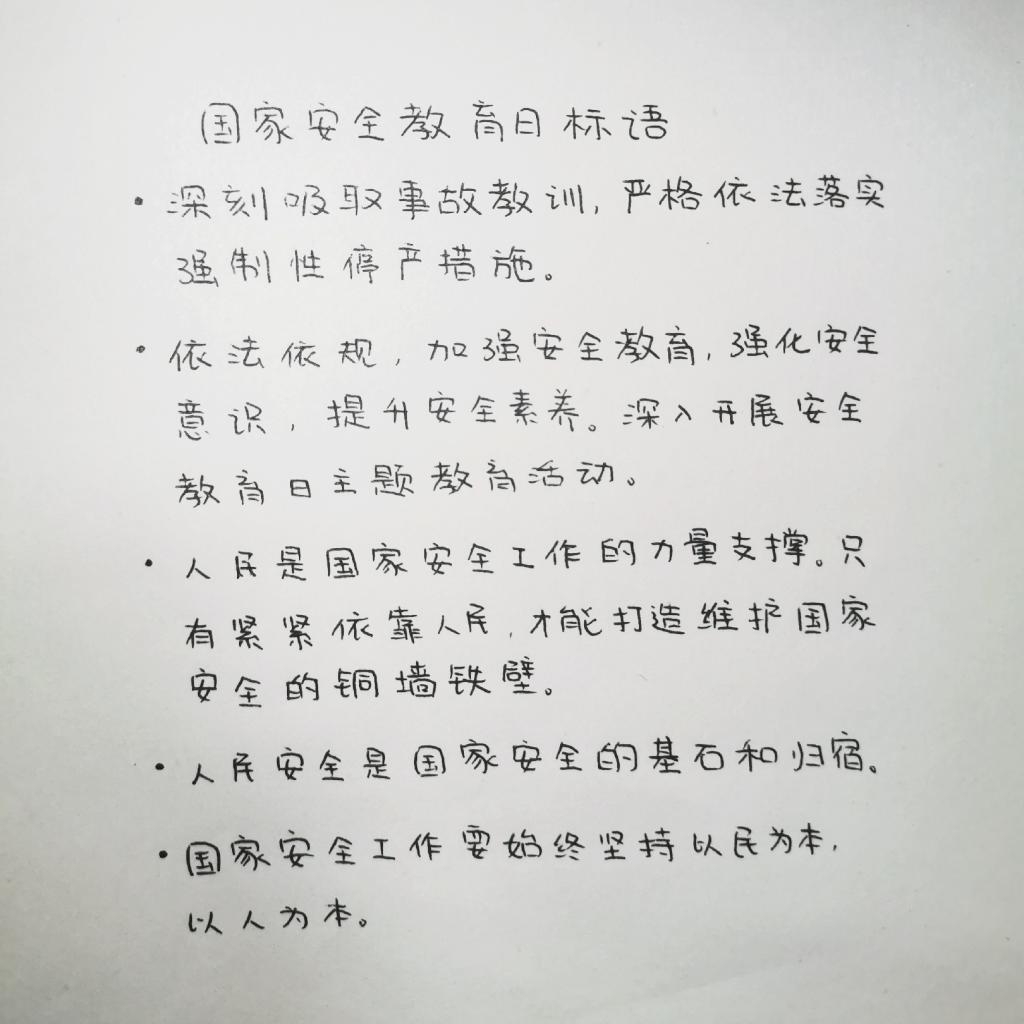 国家安全教育日标语
• 深刻吸取事故教训, 严格依法落实
强制性停产措施。
• 依法依规, 加强安全教育, 强化安全
意识, 提升安全素养。深入开展安全
教育日主题教育活动。
• 人民是国家安全工作的力量支撑。只
有紧紧依靠人民, 才能打造维护国家
安全的铜墙铁壁。
• 人民安全是国家安全的基石和归宿。
• 国家安全工作要始终坚持以民为本,
以人为本。